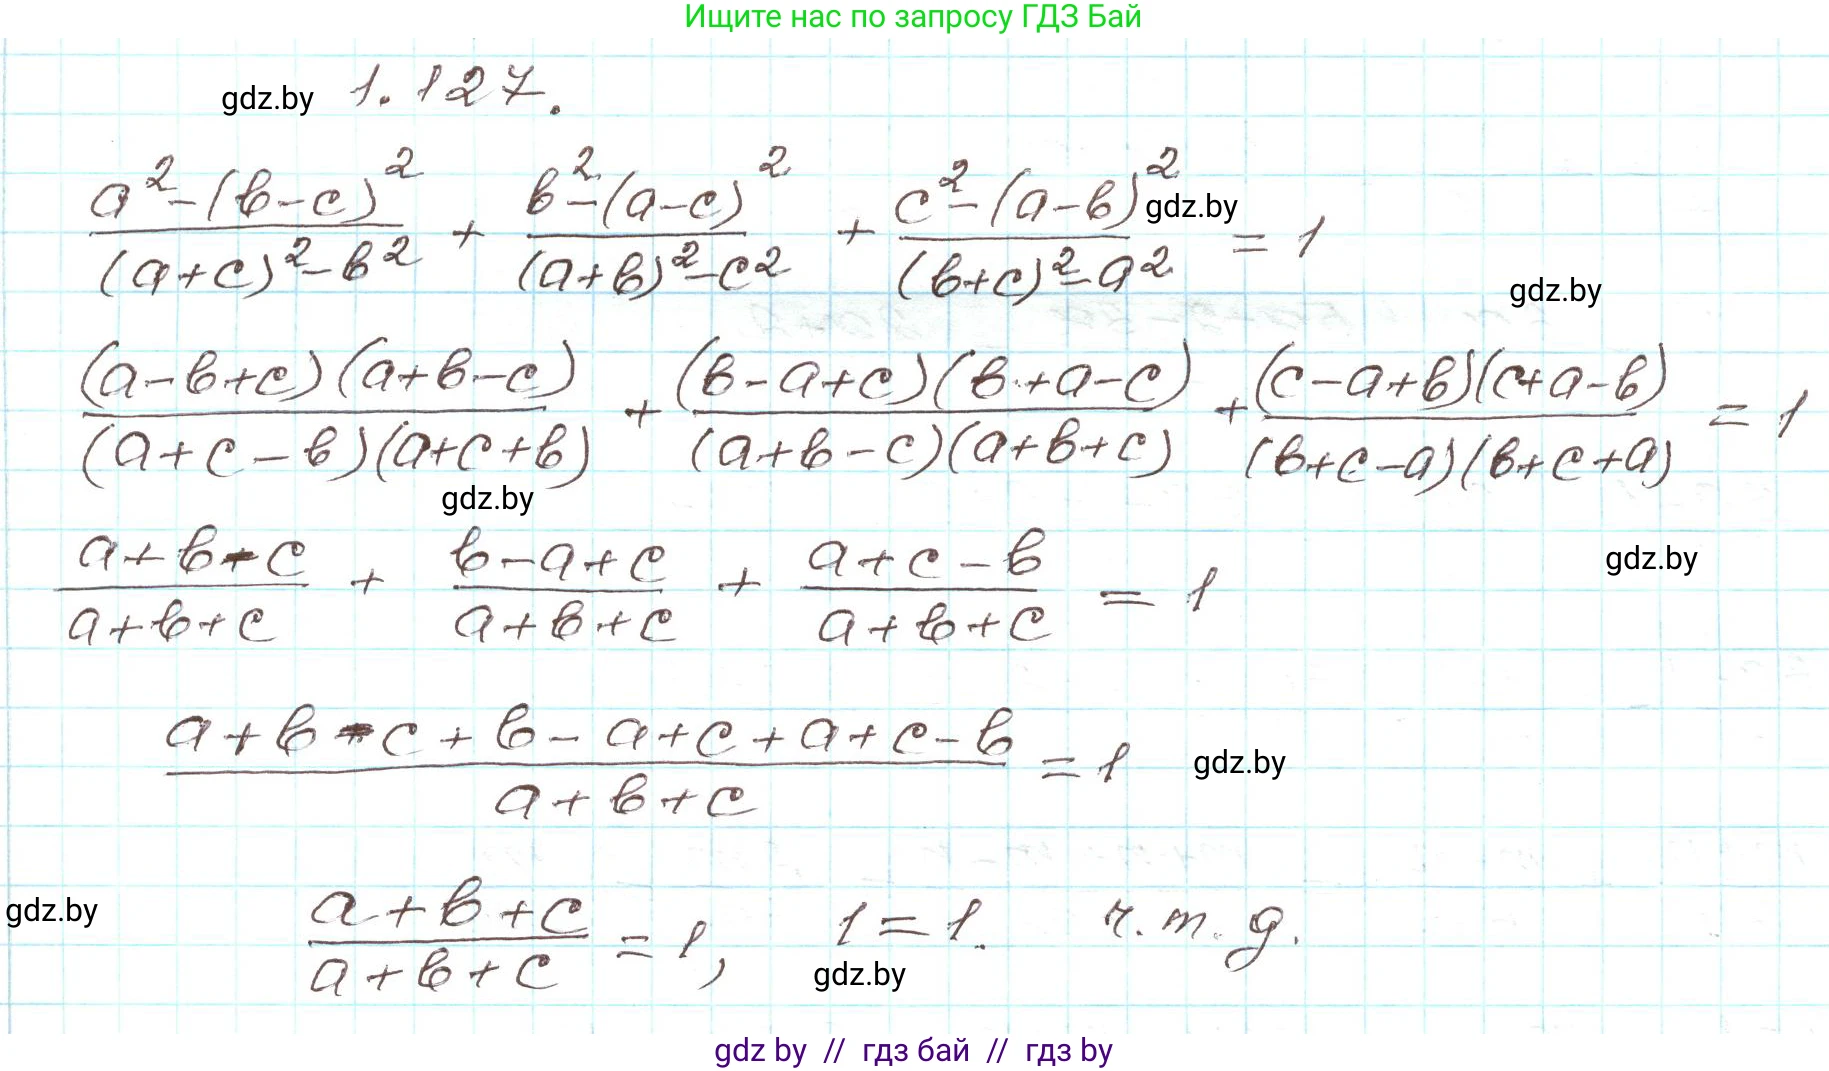 Ищите нас по запросу ГДЗ Бай
gdz.by 1.127.
(a² - (b-c)²)/((a+c)² - b²) + (b² - (a-c)²)/((a+b)² - c²) + (c² - (a-b)²)/((b+c)² - a²) = 1
gdz.by
gdz.by
((a-b+c)(a+b-c))/((a+c-b)(a+c+b)) + ((b-a+c)(b+a-c))/((a+b-c)(a+b+c)) + ((c-a+b)(c+a-b))/((b+c-a)(b+c+a)) = 1
gdz.by
(a+b-c)/(a+b+c) + (b-a+c)/(a+b+c) + (a+c-b)/(a+b+c) = 1
gdz.by
(a+b-c+b-a+c+a+c-b)/(a+b+c) = 1
gdz.by
gdz.by
(a+b+c)/(a+b+c) = 1, 1 = 1. ч.т.д.
gdz.by
gdz by // гдз бай // гдз by